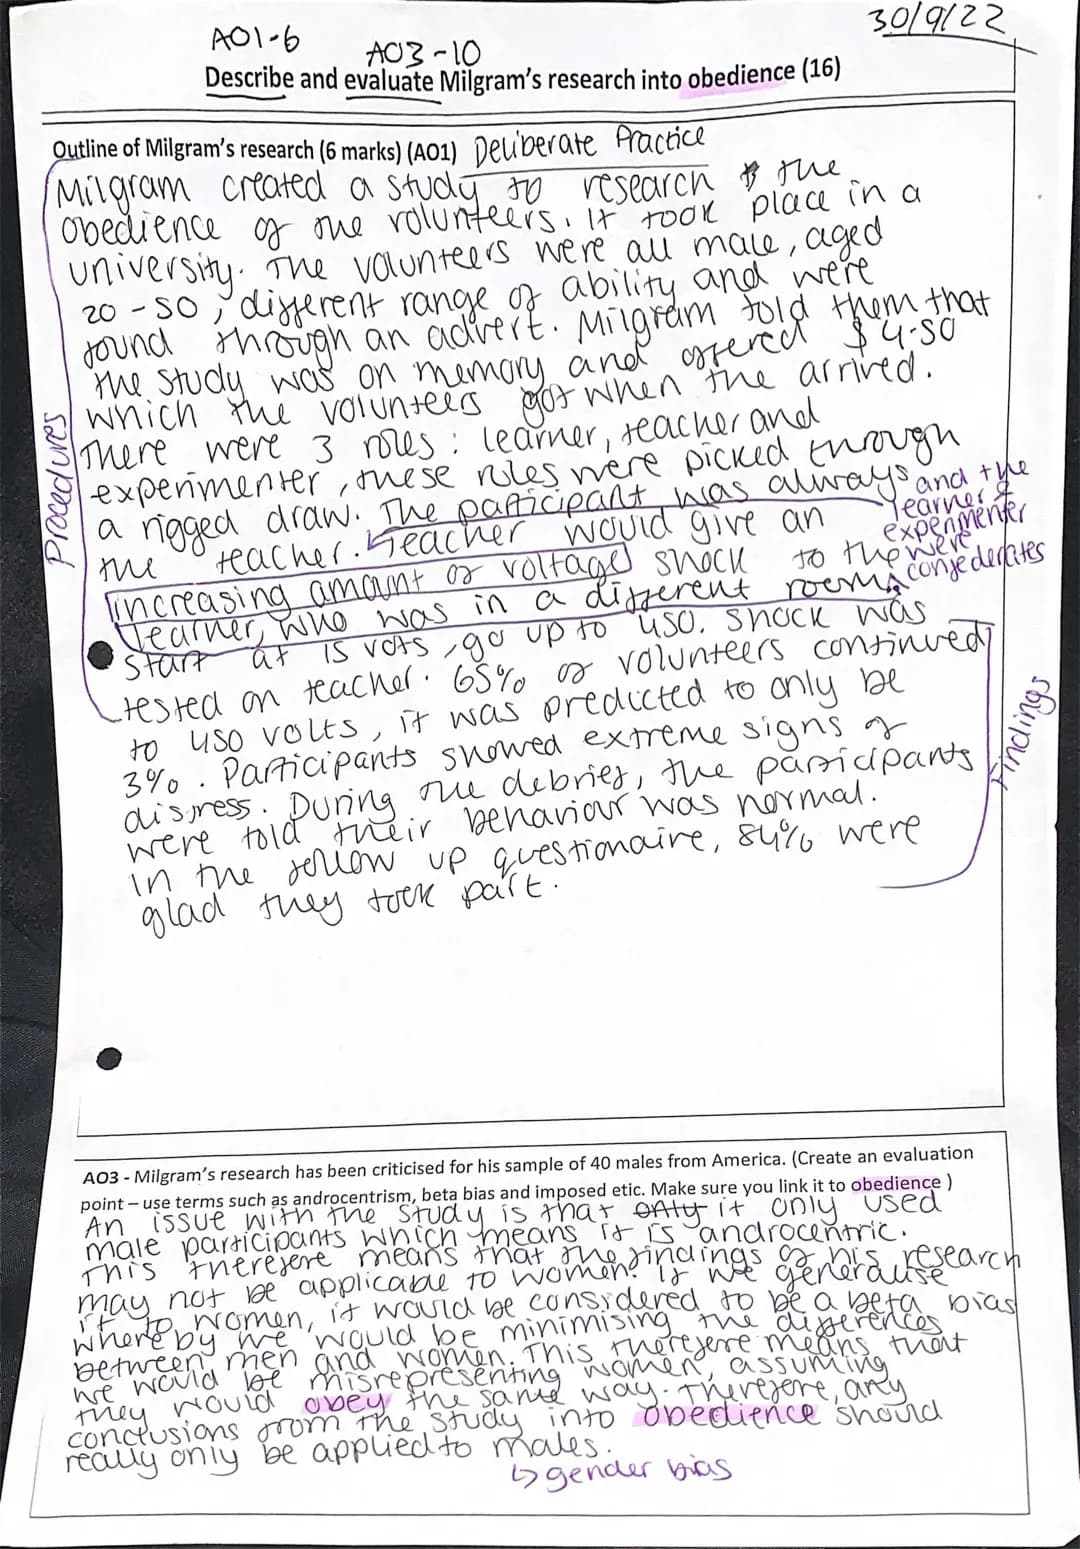 30/9/22
AO1-6 AO3-10
Describe and evaluate Milgram's research into obedience (16)
Outline of Milgram's research (6 marks) (AO1) Deliberate Practice
Milgram created a study to research the
obedience of the volunteers. It took place in a
university. The volunteers were all male, aged
20-50, different range of ability and were
found through an advert. Milgram told them that
the study was on memory and offered $4.50
which the volunteers got when the arrived.
There were 3 roles: learner, teacher and
experimenter, these roles were picked through
a rigged draw. The participant was always
the teacher. Teacher would give an
increasing amount of voltage shock to the
learner, who was in a different room.
and the
learner &
experimenter
were
confederates
Start at 15 vots, go up to 450. Shock was
tested on teacher. 65% of volunteers continued
to 450 volts, it was predicted to only be
3%. Participants showed extreme signs of
distress. During the debrief, the participants
were told their behaviour was normal.
In the follow up questionaire, 84% were
glad they took part.
Procedures
Findings
AO3 - Milgram's research has been criticised for his sample of 40 males from America. (Create an evaluation
point – use terms such as androcentrism, beta bias and imposed etic. Make sure you link it to obedience )
An issue with the study is that only it only used
male participants which means it is androcentric.
This therefore means that the findings of his research
may not be applicable to women. If we generalise
it to women, it would be considered to be a beta bias
where by we would be minimising the differences
between men and women. This therefore means that
we would be misrepresenting women, assuming
they would obey the same way. Therefore, any
conclusions from the study into obedience should
really only be applied to males.
↳ gender bias